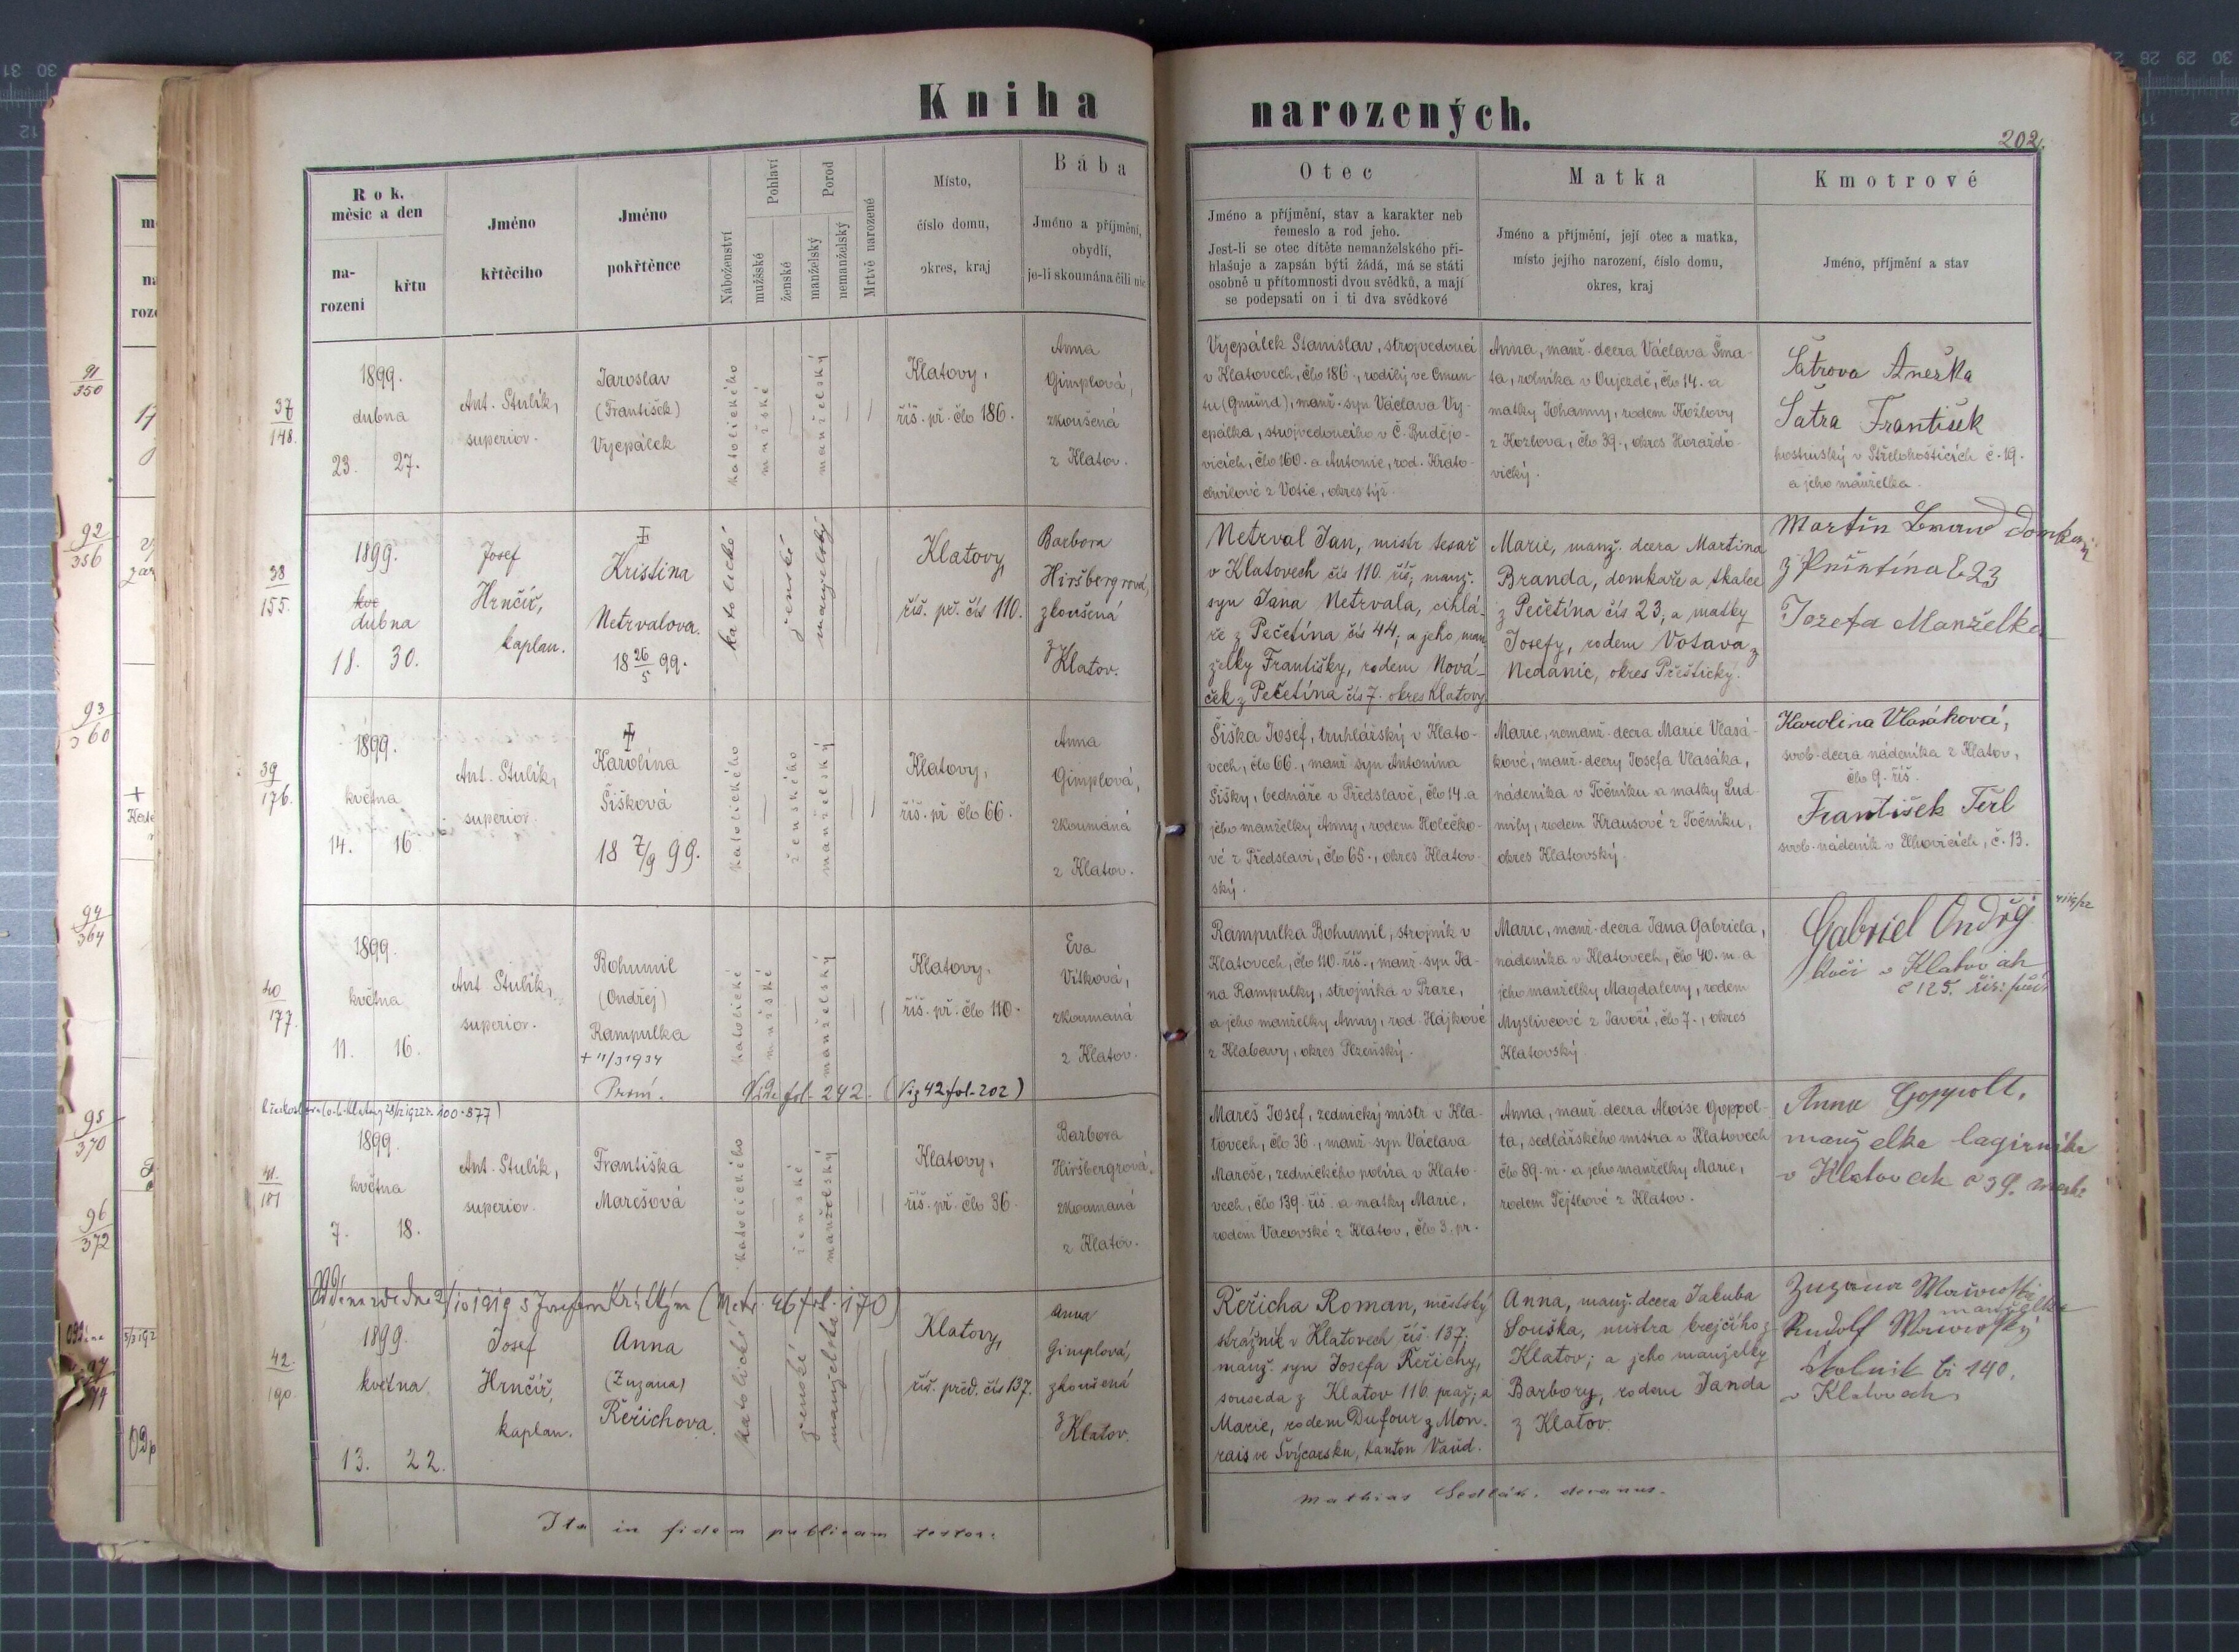 Kniha narozených.
202.
Rok, měsíc a den
narození
křtu
Jméno křtěcího
Jméno pokřtěnce
Náboženství
Pohlaví
mužské
ženské
Porod
manželský
nemanželský
Mrtvě narozené
Místo,
číslo domu,
okres, kraj
Bába
Jméno a příjmění,
obydlí,
je-li skoumána čili nic
Otec
Jméno a příjmění, stav a karakter neb
řemeslo a rod jeho.
Jest-li se otec dítěte nemanželského při-
hlašuje a zapsán býti žádá, má se státi
osobně u přítomnosti dvou svědků, a mají
se podepsati on i ti dva svědkové
Matka
Jméno a příjmění, její otec a matka,
místo jejího narození, číslo domu,
okres, kraj
Kmotrové
Jméno, příjmění a stav
37
148.
1899.
dubna
23. 27.
Ant. Stulík,
superior.
Jaroslav
(František)
Vycpálek
katolického
mužské
manželský
Klatovy,
říš. př. člo 186.
Anna
Gimplová,
zkoušená
z Klatov.
Vycpálek Stanislav, strojvedoucí
v Klatovech, člo 186., rodilý ve Cmun-
tu (Gmünd), manž. syn Václava Vy-
cpálka, strojvedoucího v Č. Budějo-
vicích, člo 160. a Antonie, rod. Krato-
chvilové z Votic, okres týž.
Anna, manž. dcera Václava Šma-
ta, rolníka v Oujezdě, člo 14. a
matky Johanny, rodem Kožlovy
z Kozlova, člo 39., okres Horaždo-
vický.
Šatrova Anežka
Šatra František
hostinský v Střelohosticích č. 19.
a jeho manželka.
38
155.
1899.
dubna
18. 30.
Josef
Hrnčíř,
kaplan.
Kristina
Netrvalova.
18 26/5 99.
katolické
ženské
manželský
Klatovy,
říš. př. čís 110.
Barbora
Hiršbergrová,
zkoušená
z Klatov.
Netrval Jan, mistr tesař
v Klatovech čís 110. říš, manž.
syn Jana Netrvala, cihlá-
ře z Pečetína čís 44; a jeho man-
želky Františky, rodem Nová-
ček z Pečetína čís 7. okres Klatovy
Marie, manž. dcera Martina
Branda, domkaře a tkalce
z Pečetína čís 23; a matky
Josefy, rodem Votava z
Nedanic, okres Přeštický.
Martin Brand domkař
Josefa Manželka
39
176.
1899.
května
14. 16
Ant. Stulík,
superior.
Karolína
Šišková
18 7/9 99.
katolického
ženského
manželský
Klatovy,
říš. př člo 66.
Anna
Gimplová,
zkoumaná
z Klatov.
Šiška Josef, truhlářský v Klato-
vech, člo 66., manž syn Antonína
Šišky, bednáře v Předslavě, člo 14. a
jeho manželky Anny, rodem Holečko-
vé z Předslavi, člo 65., okres Klatov-
ský.
Marie, nemanž. dcera Marie Vlasá-
kové, manž. dcery Josefa Vlasáka,
nádeníka v Točníku a matky Lud-
mily, rodem Krausové z Točníku,
okres Klatovský.
Karolina Vlasáková,
svob. dcera nádeníka z Klatov,
člo 9. říš.
František Terl
svob. nádeník v
č. 13.
40
177.
1899.
května
11. 16.
Ant Stulík,
superior.
Bohumil
(Ondřej)
Rampulka
+ 11/3 1934
katolické
mužské
manželský
Klatovy.
říš. př. člo 110.
Eva
Vítková,
zkoumaná
z Klatov.
Vide fol. 242. (Viz 42 fol. 202)
Rampulka Bohumil, strojník v
Klatovech, člo 110. říš., manž. syn Ja-
na Rampulky, strojníka v Praze,
a jeho manželky Anny, rod. Hájkové
z Klabavy, okres Plzeňský.
Marie, manž. dcera Jana Gabriela,
nádeníka v Klatovech, člo 40. m. a
jeho manželky Magdaleny, rodem
Myslivcové z Javoří, člo 7., okres
Klatovský
Gabriel Ondřej
kočí v Klatovách
č 125. říš: před
41.
181
1899.
května
7. 18.
Ant. Stulík,
superior.
Františka
Marešová
katolického
ženské
manželský
Klatovy,
říš. př. člo 36.
Barbora
Hiršbergrová,
zkoumaná
z Klatov.
Mareš Josef, zednický mistr v Kla-
tovech, člo 36., manž. syn Václava
Mareše, zednického políra v Klato-
vech, člo 139. říš. a matky Marie,
rodem Vacovské z Klatov, člo 3. pr.
Anna, manž. dcera Aloise Goppol-
ta, sedlářského mistra v Klatovech
člo 89. m. a jeho manželky Marie,
rodem Tejslové z Klatov.
Anna Goppolt,
manželka
v Klatovách
42.
190.
1899.
května
13. 22.
Josef
Hrnčíř,
kaplan.
Anna
(Zuzana)
Řeřichova.
katolické
ženské
manželské
Klatovy,
říš. před. čís 137.
Anna
Gimplová,
zkoušená
z Klatov.
Řeřicha Roman, městský
strážník v Klatovech říš. 137.
manž. syn Josefa Řeřichy,
souseda z Klatov 116. praž; a
Marie, rodem Dufour z Mon-
rais ve Švýcarsku, kanton Vaud.
Anna, manž. dcera Jakuba
Souška, mistra krejčího z
Klatov; a jeho manželky
Barbory, rodem Janda
z Klatov.
Zuzana
manželka
Rudolf
140.
v Klatovách
Ita in fidem publicam testor.
Mathias Sedlák, decanus.
91
350
92
356
93
360
94
364
95
370
96
372